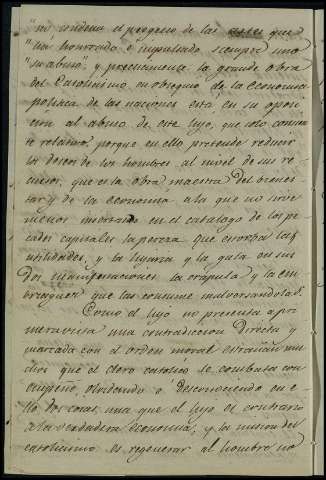 "no condena el progreso de las artes que
"ha honrado e impulsado siempre sino
"su abuso", y precisamente la grande obra
del Catolicismo, en obsequio de la economia
politica de las naciones está en su oposi-
cion al abuso de este lujo, que solo consien-
te relativo, porque en ello pretende reducir
los deseos de los hombres al nivel de sus re-
cursos, que es la obra maestra del bienes-
tar y de la economia a la que no sirve
menos incluyendo en el catalogo de los pe-
cados capitales la pereza que estorba las
utilidades, y la lujuria y la gula en sus
dos manifestaciones la crápula y la em-
briaguez que las consume malversandolas.
Como el lujo no presenta a pri-
mera vista una contradiccion directa y
marcada con el orden moral estrañan mu-
chos que el clero catolico le combata con
empeño, olvidando o desconociendo en e-
llo dos cosas, una que el lujo es contrario
a la verdadera economia, y la mision del
catolicismo es regenerar al hombre no